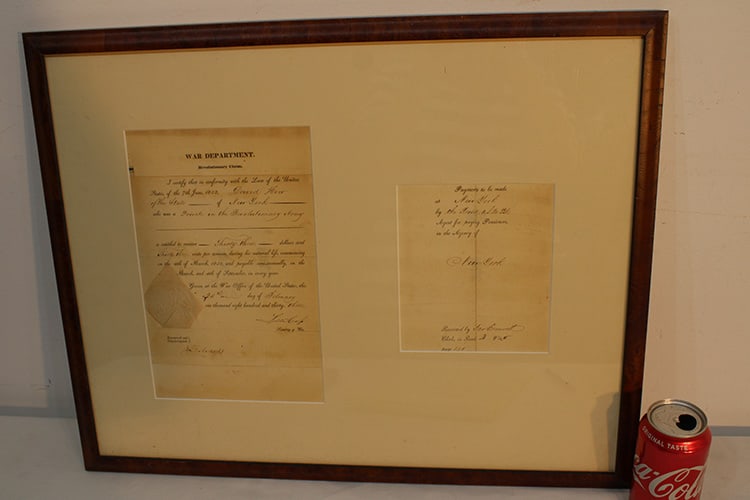 WAR DEPARTMENT.
Revolutionary Claim.
I certify that in conformity with the Law of the United
States, of the 7th June, 1832, David
of the State of New York
who was a Private in the Revolutionary Army
is entitled to receive Thirty three dollars and
Thirty three cents per annum, during his natural life, commencing
on the 4th of March, 1831, and payable semi-annually, on the
4th of March, and 4th of September, in every year.
Given at the War Office of the United States, this
day of February
one thousand eight hundred and thirty three
Lew Cass
Secretary of War.
Examined and
Countersigned
Payments to be made
at New York
by the
Agent for paying Pensioners
in the Agency of
New York
Recorded by
Clerk in Book
ORIGINAL TASTE
Coca-Cola